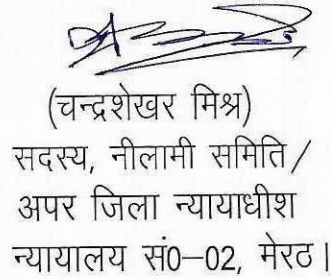 (चन्द्रशेखर मिश्र)
सदस्य, नीलामी समिति /
अपर जिला न्यायाधीश
न्यायालय सं0–02, मेरठ।